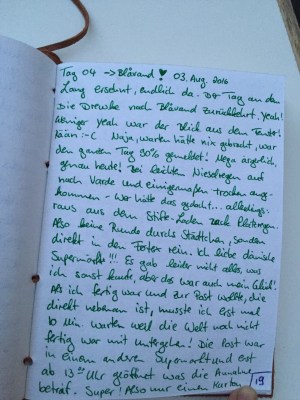 Tag 04 → Blåvand ♥ 03. Aug. 2016
Lang ersehnt, endlich da. Der Tag an dem
die Drewke nach Blåvand zurückkehrt. Yeah!
Weniger yeah war der Blick aus dem Fenster:
Nään :-( Naja, warten hätte nix gebracht, war
den ganzen Tag 90% gemeldet! Mega ärgerlich,
genau heute! Bei leichten Nieselregen auf
nach Varde und einigermaßen trocken ange-
kommen - wer hätte das gedacht... allerdings
raus aus dem Stifte-Laden zack Platzregen.
Also keine Runde durch Städtchen, sondern
direkt in den Føtex rein. Ich liebe dänische
Supermärkte!!! Es gab leider nicht alles, was
ich sonst kaufe, aber das war auch mein Glück!
Als ich fertig war und zur Post wollte, die
direkt nebenan ist, musste ich erst mal
10 Min warten weil die Welt noch nicht
fertig war mit untergehen! Die Post war
in einem anderen Supermarkt und erst
ab 13 Uhr geöffnet was die Annahme
betraf. Super! Also nur einen Karton
19